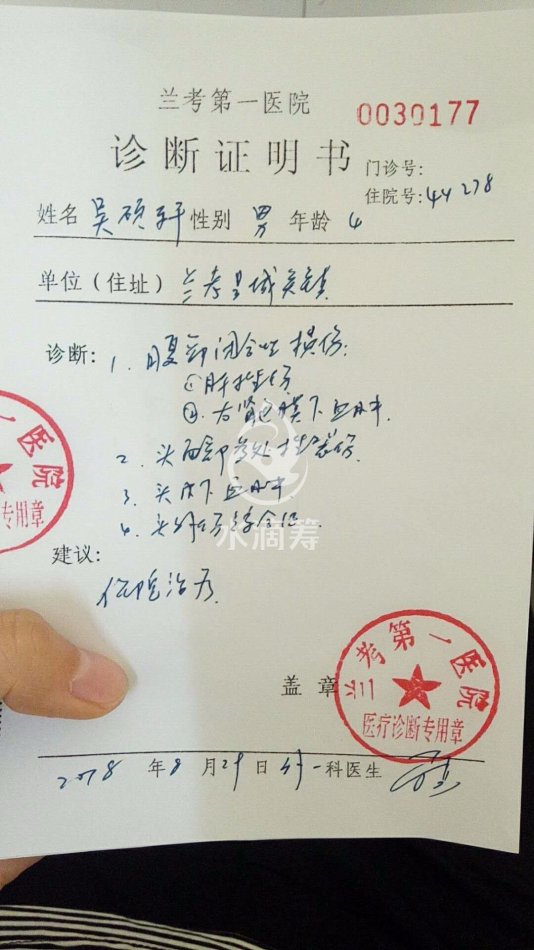 兰考第一医院
0030177
诊断证明书
门诊号:
住院号: 44278
姓名 吴硕轩 性别 男 年龄 4
单位(住址) 兰考县城关镇
诊断: 1、腹部闭合性损伤:
①肝挫伤
②右肾包膜下血肿
2、头面部多处挫裂伤
3、头皮下血肿
4、头外伤综合征
水滴筹
建议:
住院治疗
盖章
兰考第一医院
医疗诊断专用章
一医院
专用章
2018 年 8 月 29 日 外一科医生